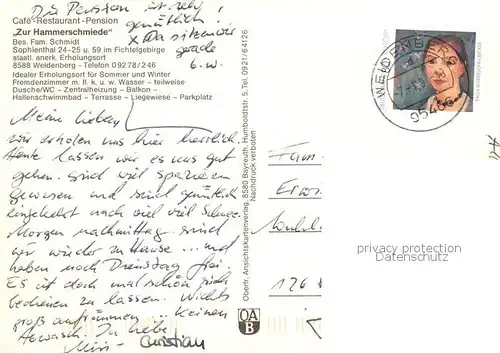 Die Pension ist sehr
gemütlich!
x Da sitzen wir
gerade
G. w.
Café-Restaurant-Pension
"Zur Hammerschmiede"
Bes. Fam. Schmidt
Sophienthal 24-25 u. 59 im Fichtelgebirge
staatl. anerk. Erholungsort
8588 Weidenberg - Telefon 09278/246
Idealer Erholungsort für Sommer und Winter
Fremdenzimmer m. fl. k. u. w. Wasser – teilweise
Dusche/WC – Zentralheizung – Balkon –
Hallenschwimmbad – Terrasse – Liegewiese – Parkplatz
Meine Lieben,
wir erholen uns hier herrlich.
Heute lassen wir es uns gut
gehen. Sind viel spazieren
gewesen und sind gemütlich
eingekehrt nach viel viel
Morgen nachmittag sind
wir wieder zu Hause ... und
haben noch Dienstag frei.
Es ist doch mal schön sich
bedienen zu lassen. Nichts
groß aufräumen ... keinen
Abwasch. In Liebe,
Christian
Oberfr. Ansichtskartenverlag, 8580 Bayreuth, Humboldtstr. 5, Tel. 0921/64126
Nachdruck verboten
OA
B
WEIDENBERG
95466
Fam.
126
privacy protection
Datenschutz